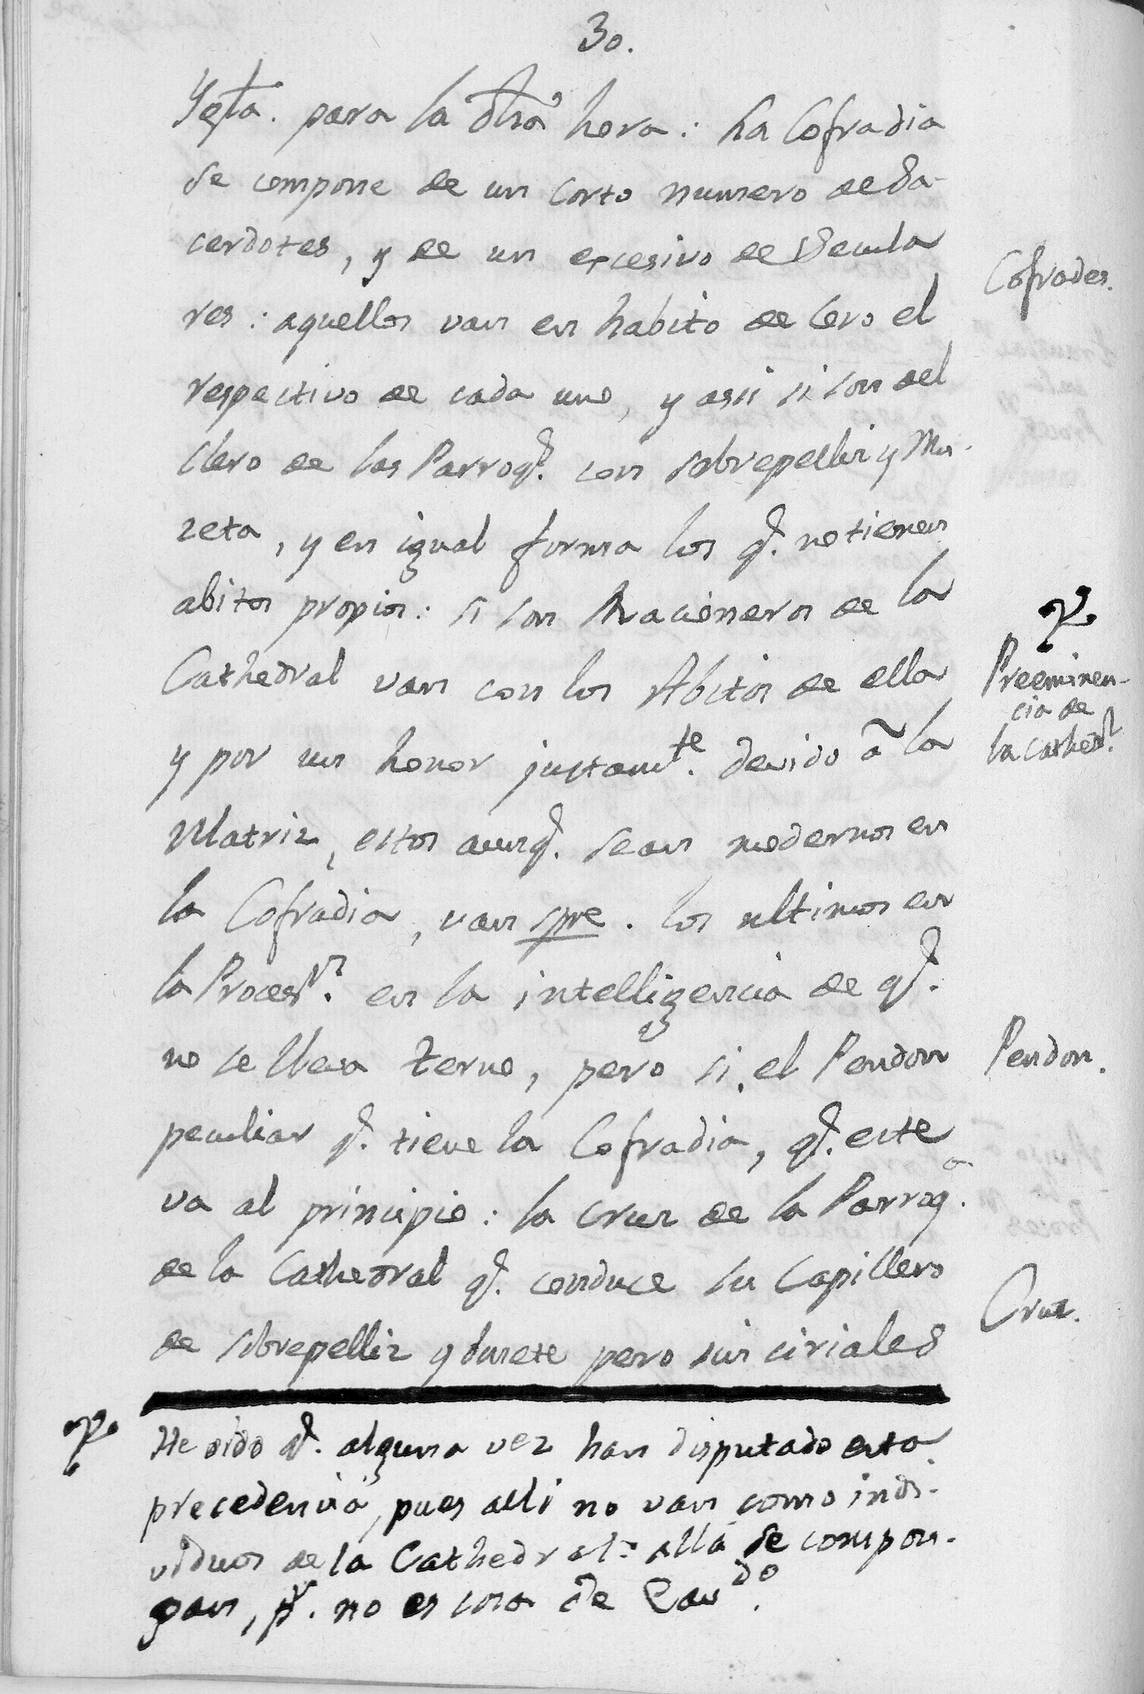 30.
para la dhã hora: La Cofradia
se compone de un corto numero de Sa-
cerdotes, y de un excesivo de Secula
res: aquellos van en habito de Coro el
respectivo de cada uno, y assi si son del
Clero de las Parroq.s con sobrepelliz y Mu-
zeta, y en igual forma los q.e no tienen
abitos propios: si son Racioneros de la
Cathedral van con los Abitos de ella
y por un honor justam.te devido â la
Matriz, estos aunq.e sean modernos en
la Cofradia, van spre. los ultimos en
la Proces.n en la intelligencia de q.e
no se lleva terno, pero si, el Pendon
peculiar q.e tiene la Cofradia, q.e este
va al principio: la Cruz de la Parroq.a
de la Cathedral q.e conduce su Capillero
de sobrepelliz y bonete pero sin ciriales
Cofrades.
Preeminen-
cia de
la Cathed.l
Pendon.
Cruz.
He oido q.e alguna vez han disputado esta
precedencia, pues alli no van como indi-
viduos de la Cathedral: alla se compon-
gan, p.r no es cosa de